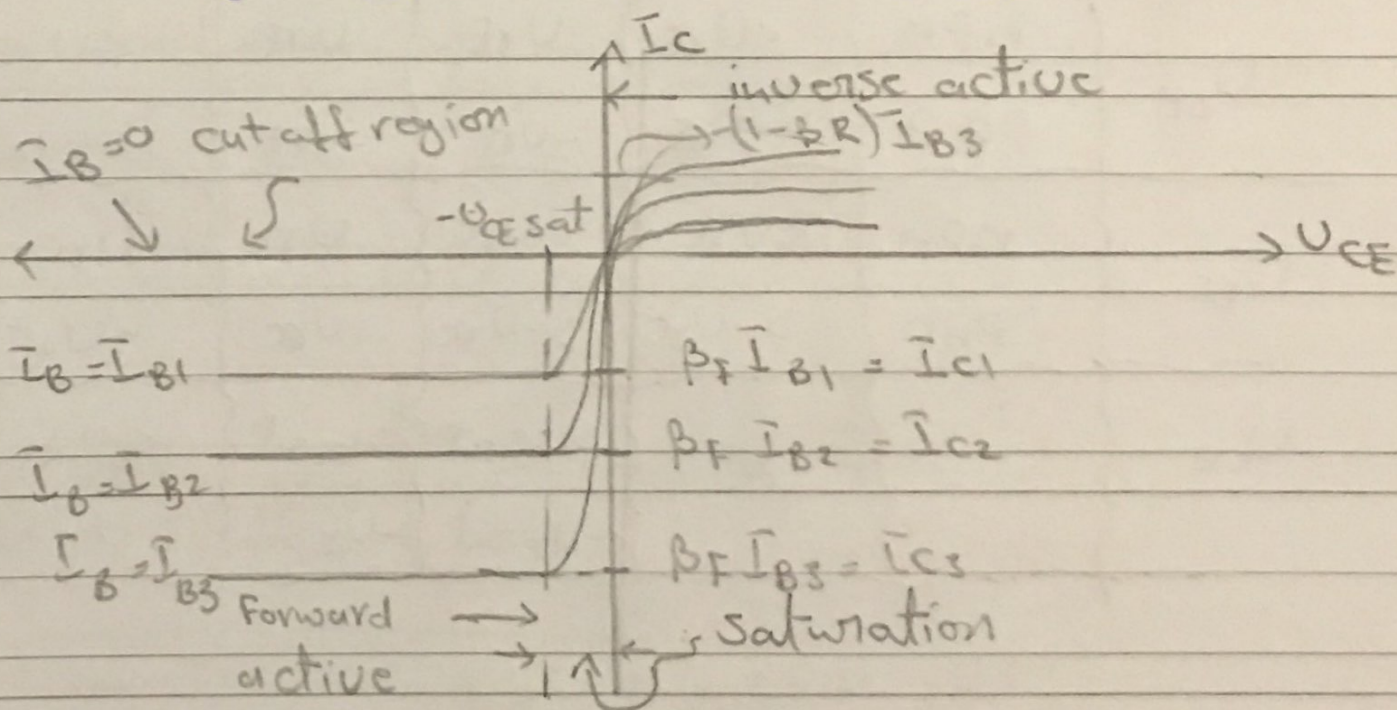 IC
inverse active
IB=0 cutoff region
-(1-βR)IB3
-UCE sat
UCE
IB=IB1
βF IB1 = IC1
βF IB2 = IC2
IB=IB2
IB=IB3
βF IB3=IC3
Forward
saturation
active